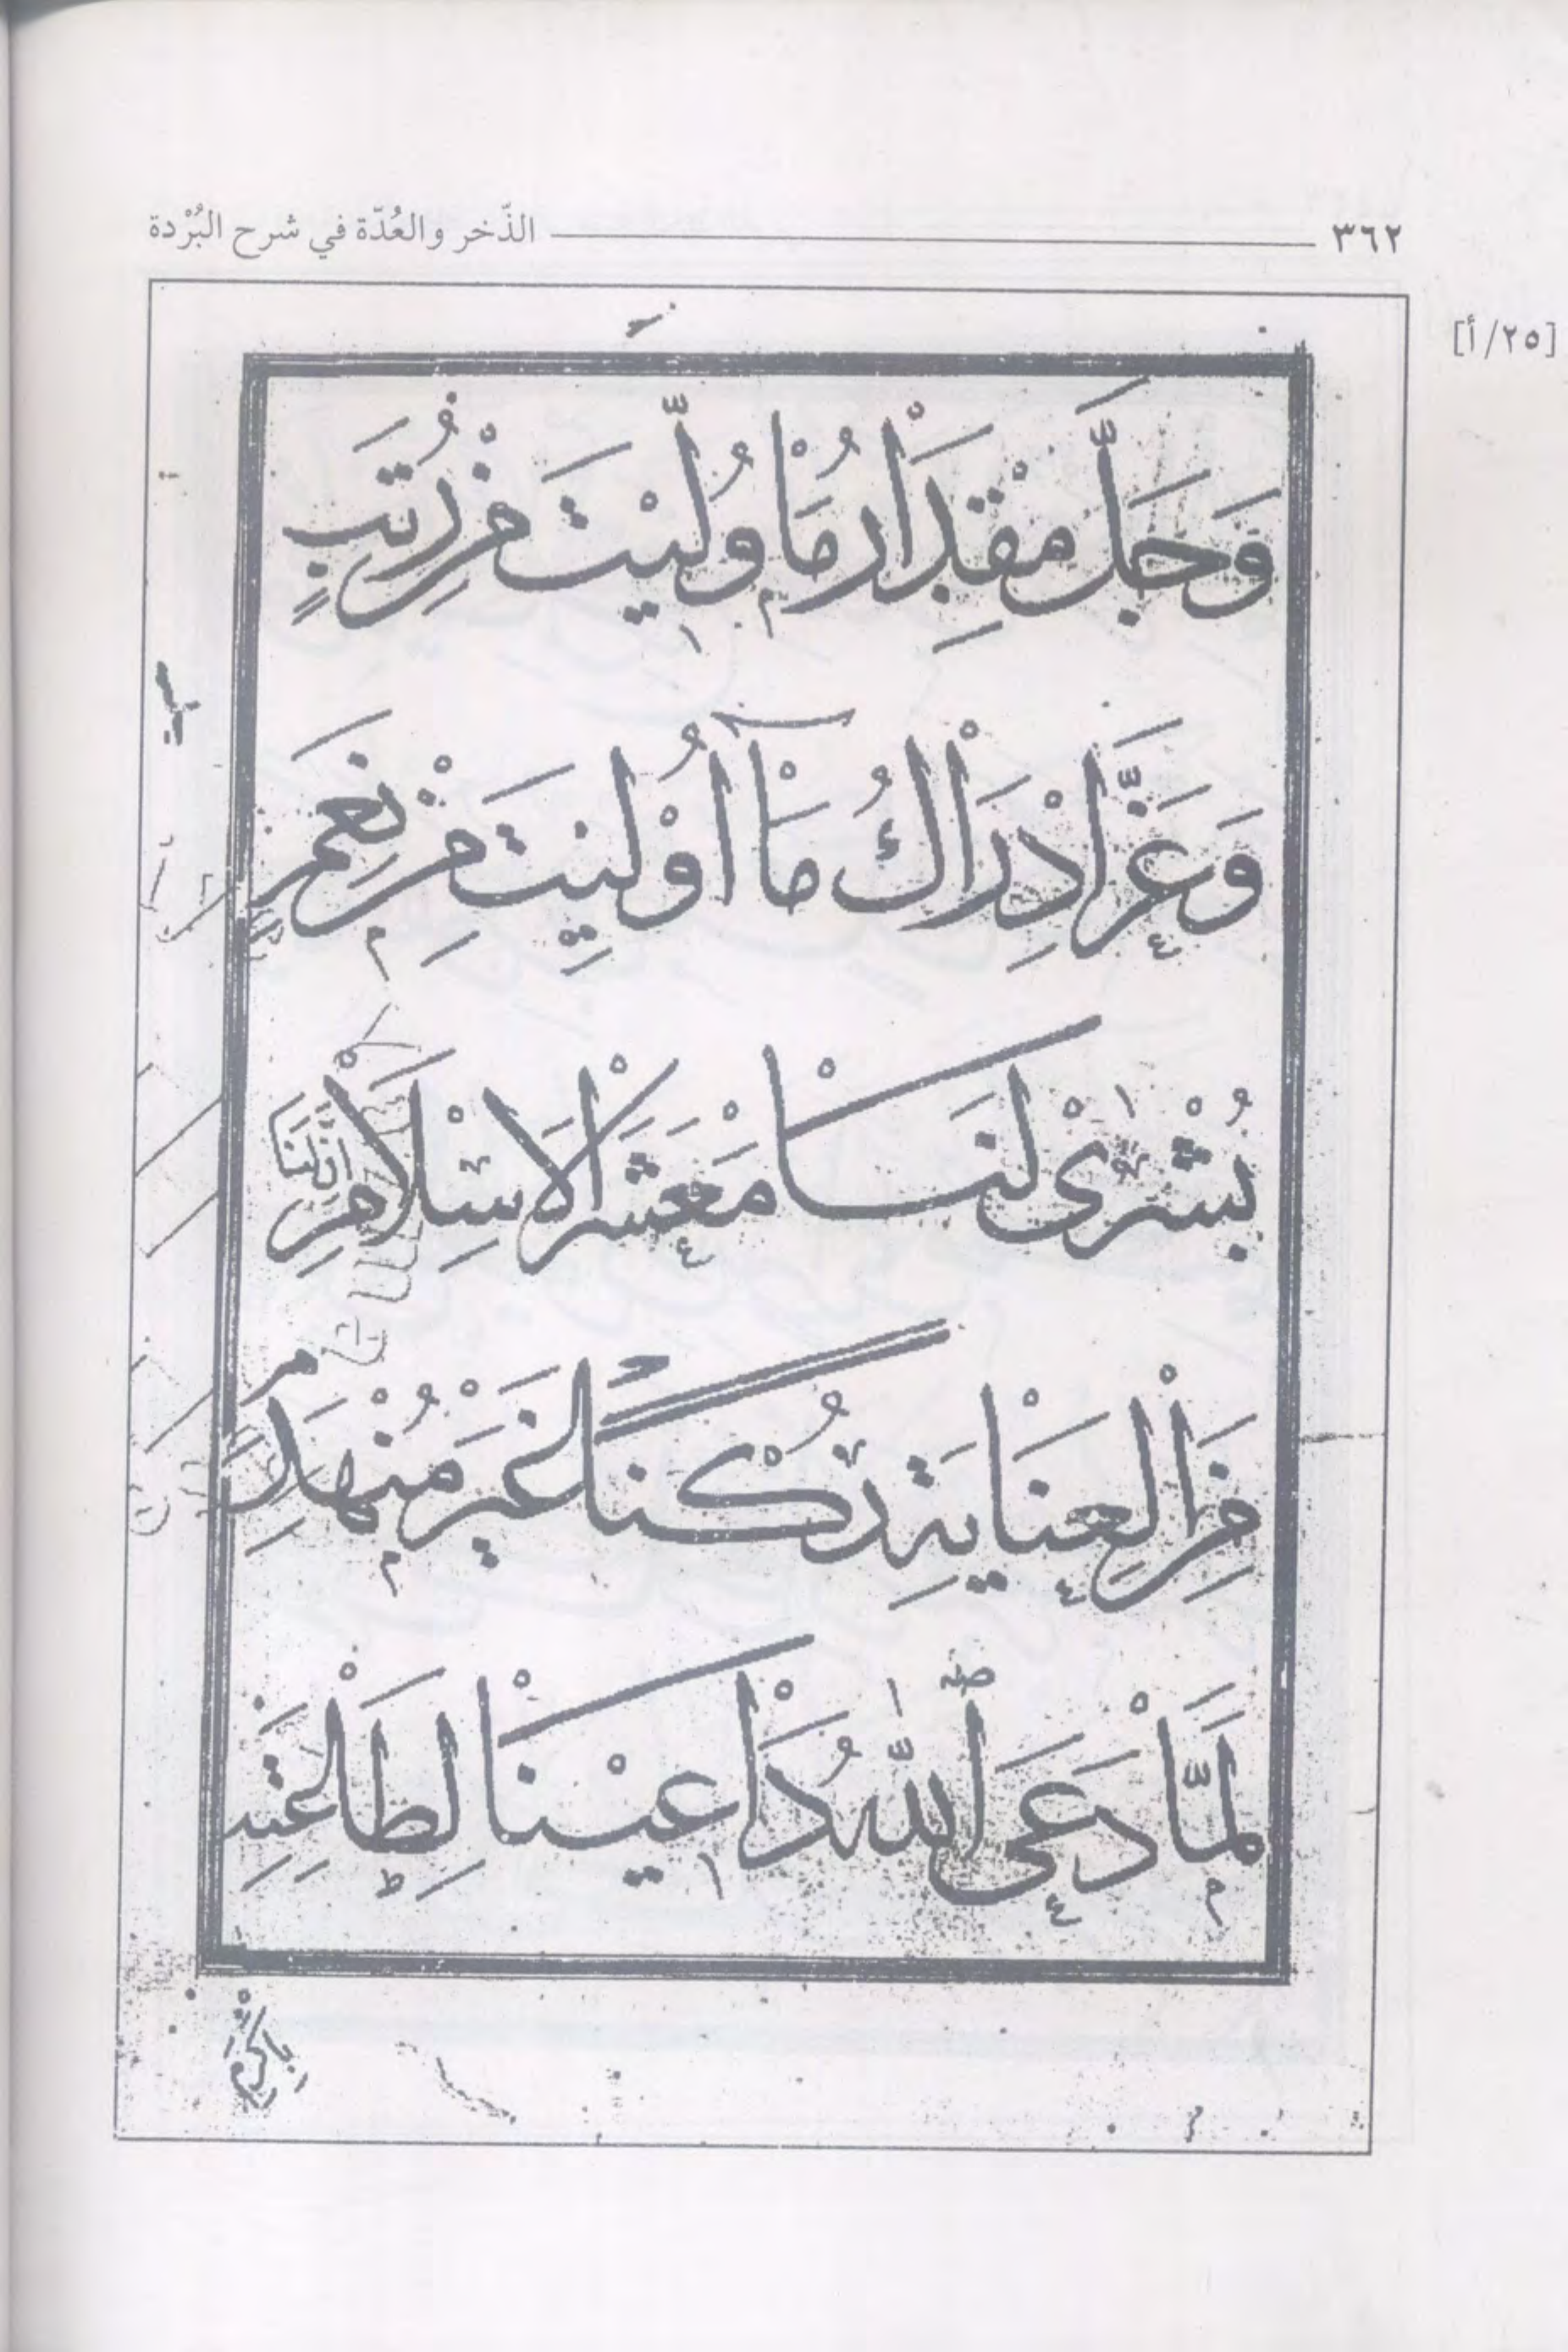 ٣٦٢ الذّخر والعُدّة في شرح البُرْدة
[٢٥/أ]
وَجَلَّ مِقْدَارُ مَا وُلِّيْتَ مِنْ رُتَبٍ
وَعَزَّ اِدْرَاكُ مَآ اُوْلِيتَ مِنْ نِعَمِ
بُشْرٰى لَنَا مَعْشَرَ الْاِسْلَامِ اِنَّ لَنَا
مِنَ الْعِنَايَةِ رُكْنًا غَيْرَ مُنْهَدِمِ
لَمَّا دَعَى اللّٰهُ دَاعِيْنَا لِطَاعَتِهِ
بِاَكْرَمِ